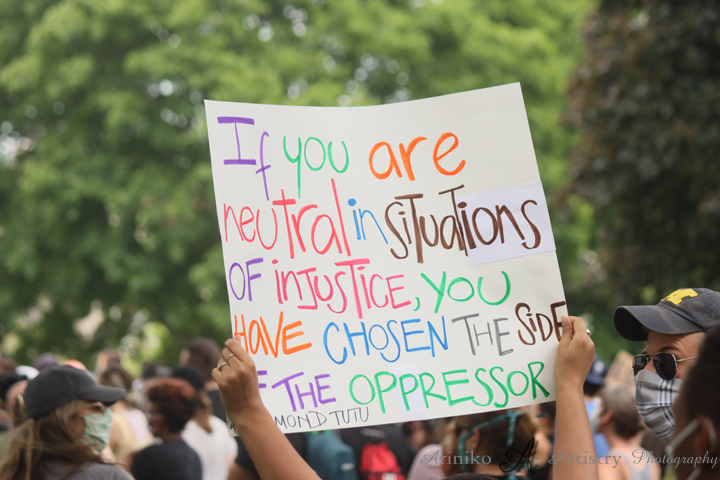 If you are
neutral in situations
OF INJUSTICE, YOU
HAVE CHOSEN THE SIDE
OF THE OPPRESSOR
MOND TUTU
M
Ariniko A Artistry Photography